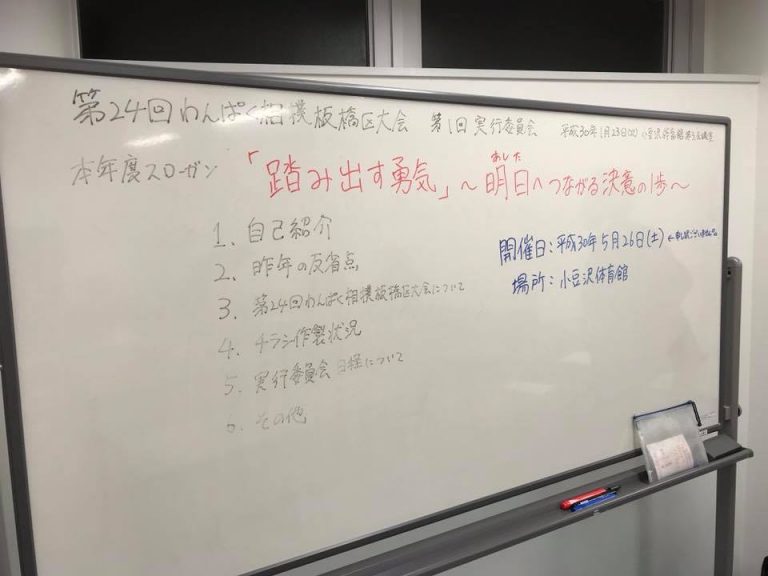 第24回わんぱく相撲板橋区大会 第1回実行委員会 平成30年1月23日(火) 小豆沢体育館
本年度スローガン 「踏み出す勇気」〜明日へつながる決意の1歩〜
あした
1、自己紹介
2、昨年の反省点
3、第24回わんぱく相撲板橋区大会について
4、チラシ作製状況
5、実行委員会日程について
6、その他
開催日:平成30年5月26日(土)
場所:小豆沢体育館